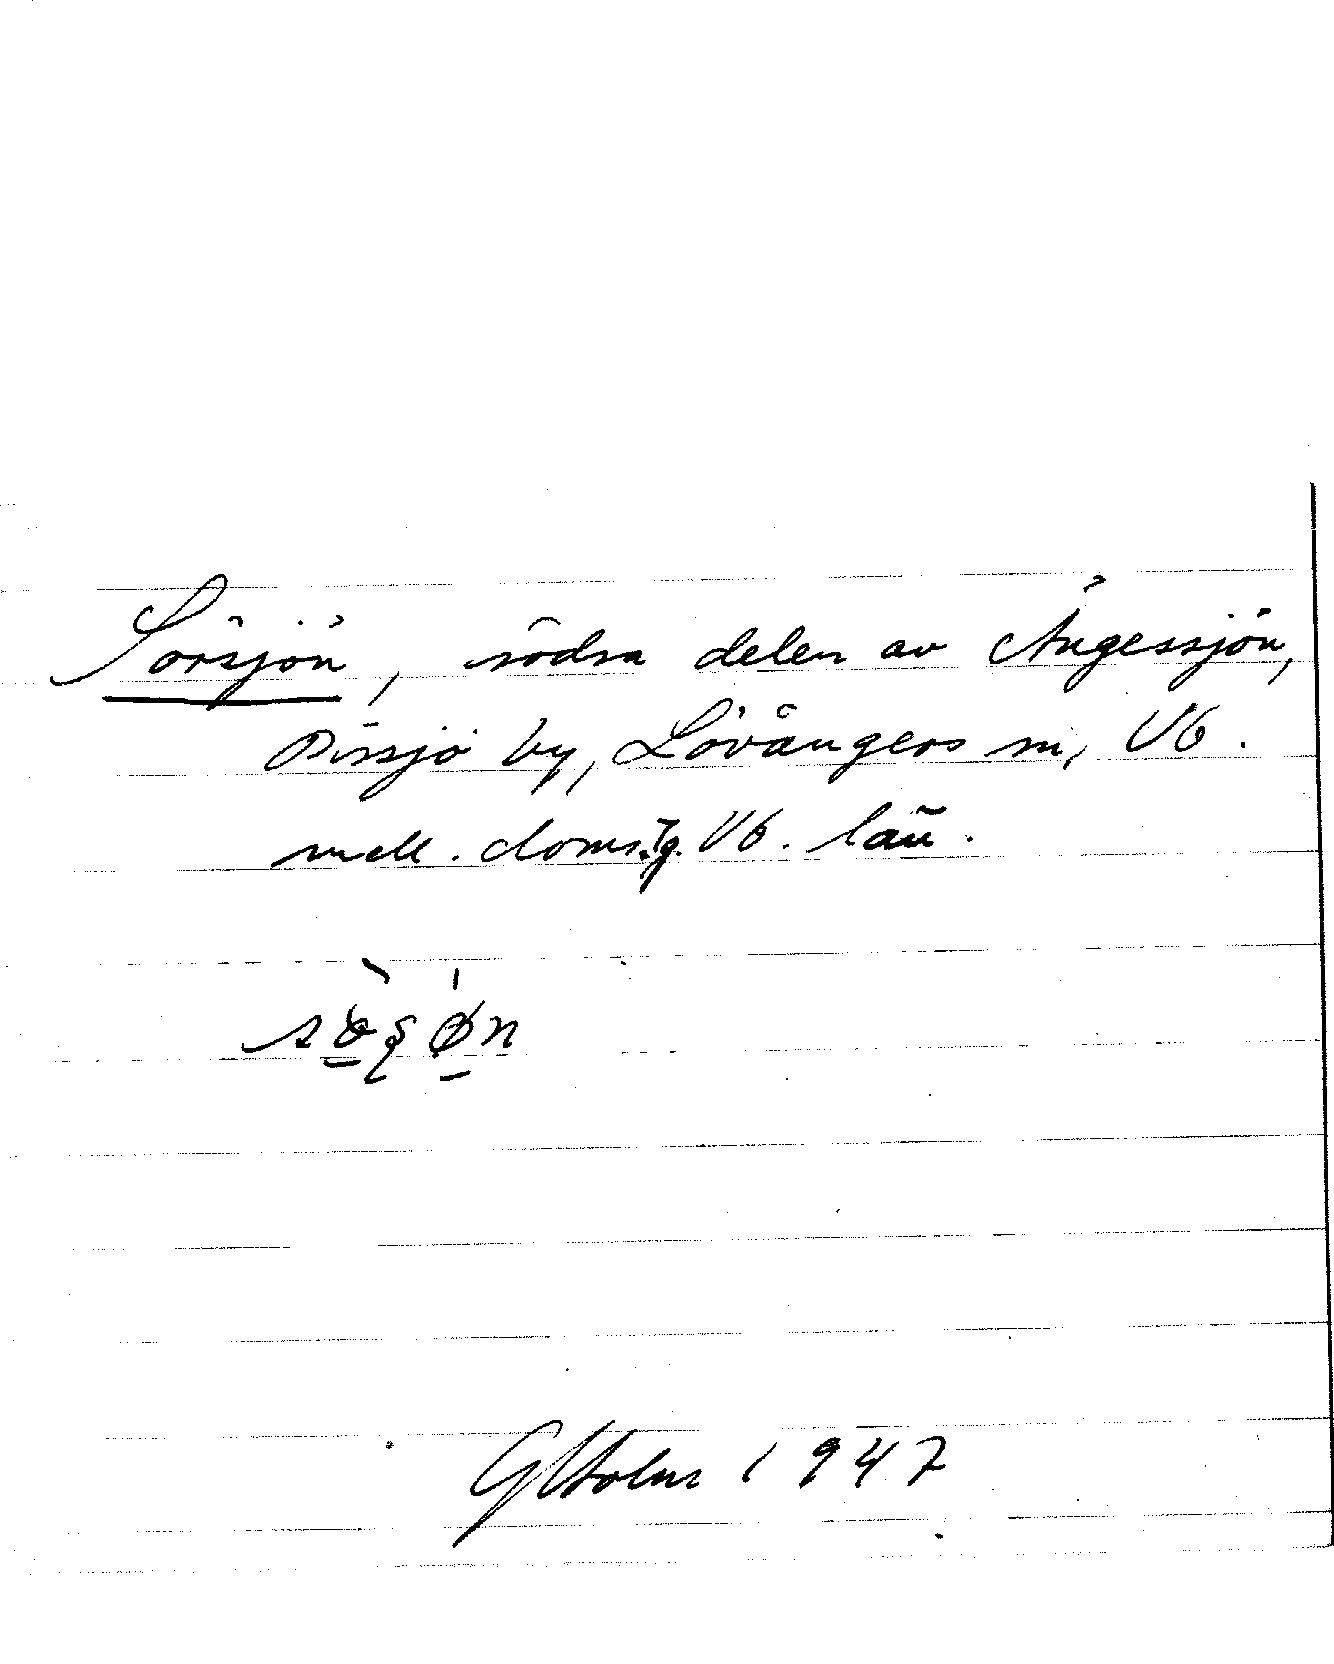 Sörsjön, södra delen av Ångessjön,
Bissjö by, Lövångers sn, Vb.
mell. doms.g. Vb. län.
GHolm 1947